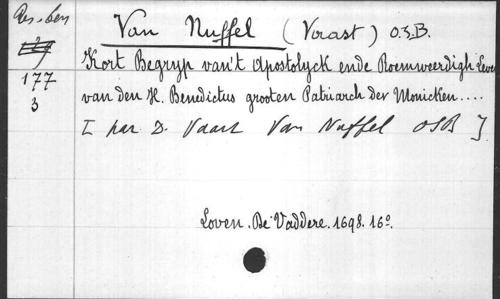 Res. ben
Van Nuffel (Vaast) O.S.B.
177
3
Kort Begryp van't Apostolyck ende Roemweerdigh Leven
van den H. Benedictus grooten Patriarch der Monicken....
[ par D. Vaast Van Nuffel OSB ]
Loven. De Vaddere. 1698. 16º.